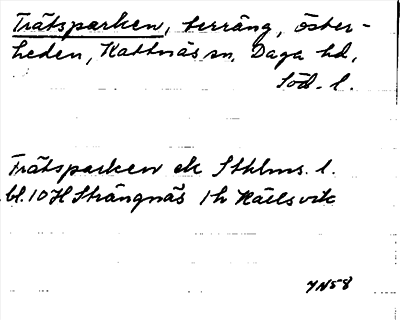 Trätsparken, terräng, Öster-
heden, Kattnäs sn, Daga hd,
Söd. l.
Trätsparken ek Sthlms. l.
bl. 10 H Strängnäs 1h Källsvik
YN58